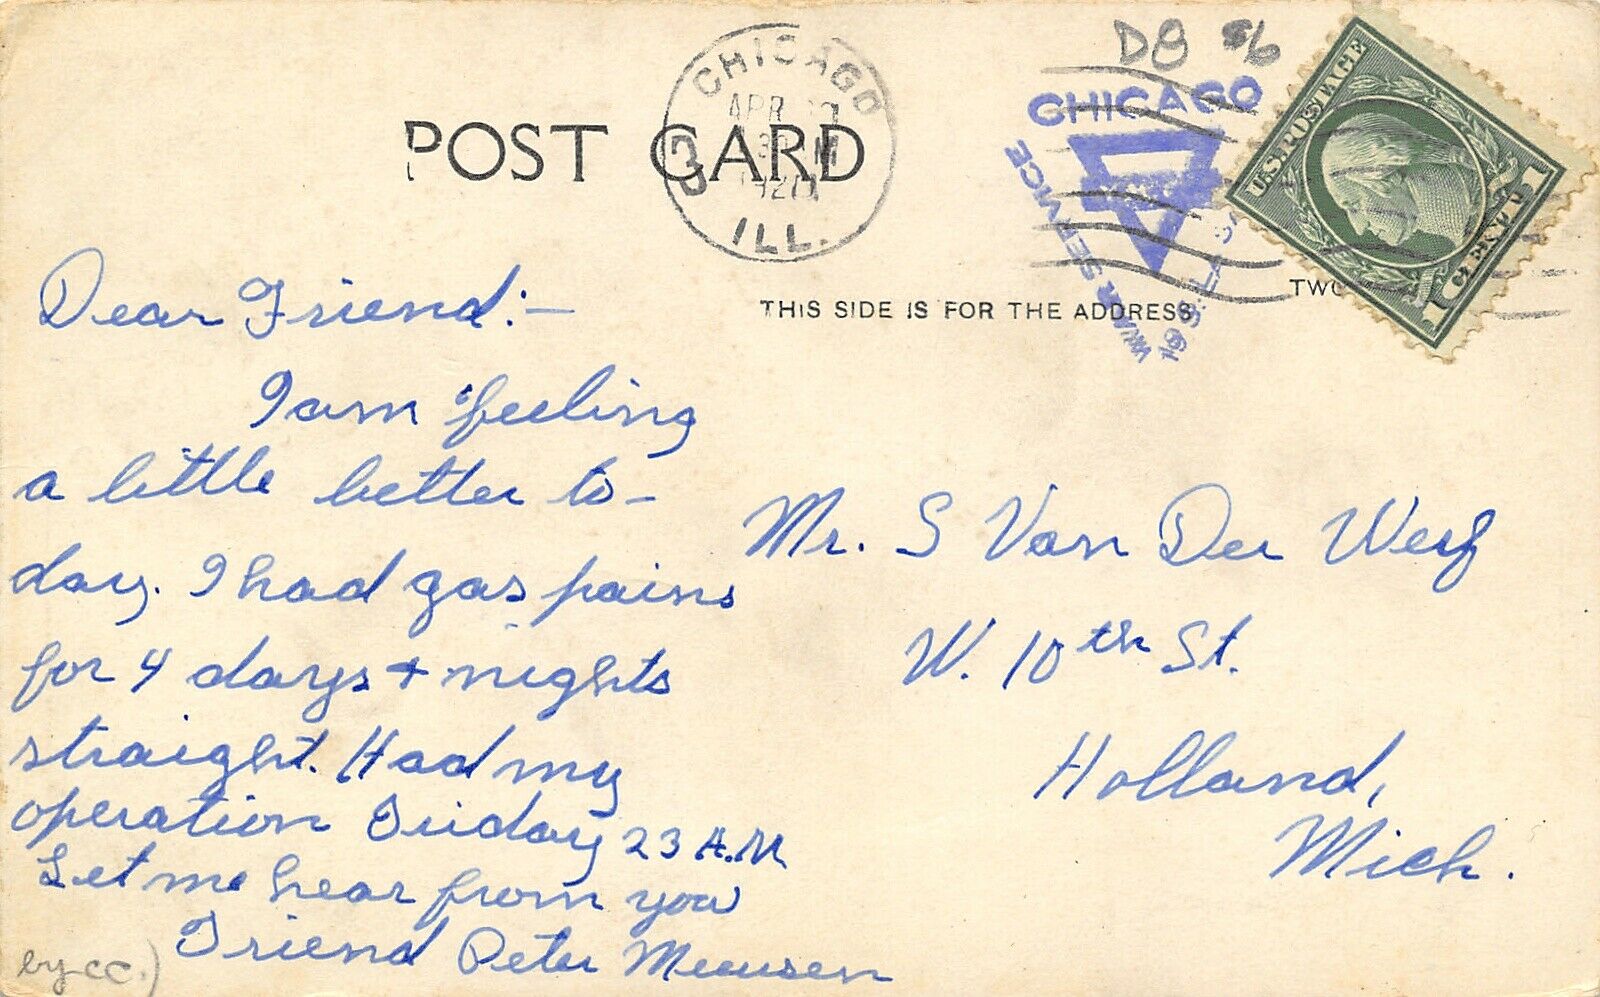 D8 $6
CHICAGO
APR
1920
ILL.
CHICAGO
WAR SERVICE
W.S.S.
U.S. POSTAGE
1 CENT 1
POST CARD
THIS SIDE IS FOR THE ADDRESS
TWO
Dear Friend:—
I am feeling
a little better to-
day. I had gas pains
for 4 days + nights
straight. Had my
operation Friday 23 A.M
Let me hear from you
Friend Peter Meeusen
by CC.)
Mr. S Van Der Werf
W. 10th St.
Holland,
Mich.